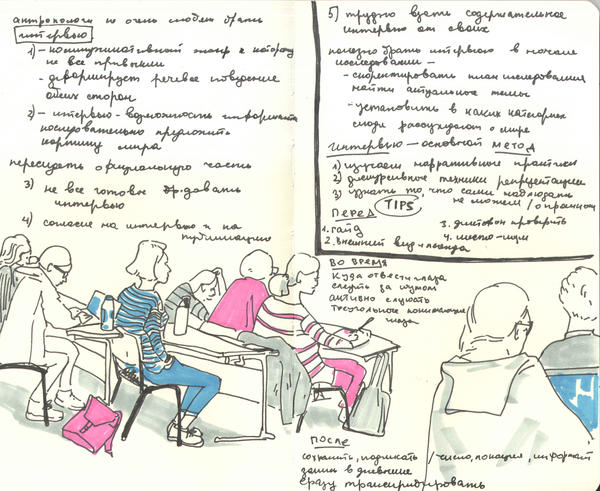 антропологи не очень любят брать
интервью
1) - коммуникативный жанр к которому
не все привыкли
- деформирует речевое поведение
обеих сторон
2) - интервью - возможность информанта
последовательно предложить
картину мира
пересидеть официальную часть
3) не все готовы давать
интервью
4) согласие на интервью и на
публикацию
5) трудно взять содержательное
интервью от своих
полезно брать интервью в начале
исследования -
- скорректировать план исследования
найти актуальные темы
- установить в каких категориях
люди рассуждают о мире
Интервью - основной метод
1) изучаем нарративные практики
2) дискурсивные техники репрезентации
3) узнать то, что сами наблюдать
не можем /о прошлом
TIPS
Перед
1. гайд
2. внешний вид + легенда
3. диктофон проверить
4. место - шум
во время
куда отвести глаза
следить за шумом
активно слушать
треугольное
после
сохранить, подписать / число, локация, информант
запись в дневнике
сразу транскрибировать